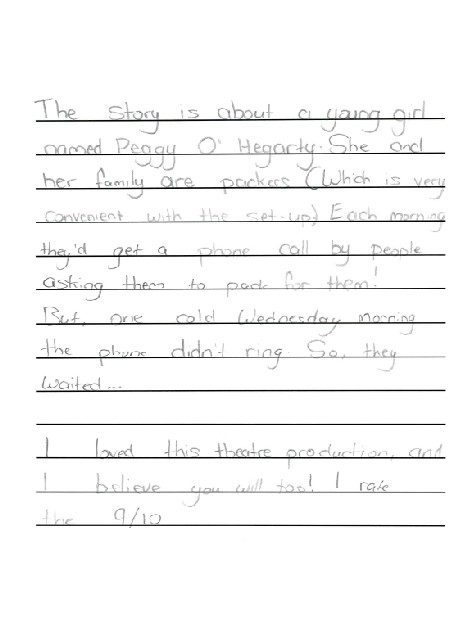 The story is about a young girl
named Peggy O' Hegarty. She and
her family are packers (Which is very
convenient with the set-up) Each morning
they'd get a phone call by people
asking them to pack for them!
But, one cold Wednesday morning
the phone didn't ring. So, they
waited...
I loved this theatre production, and
I believe you will too! I rate
the 9/10